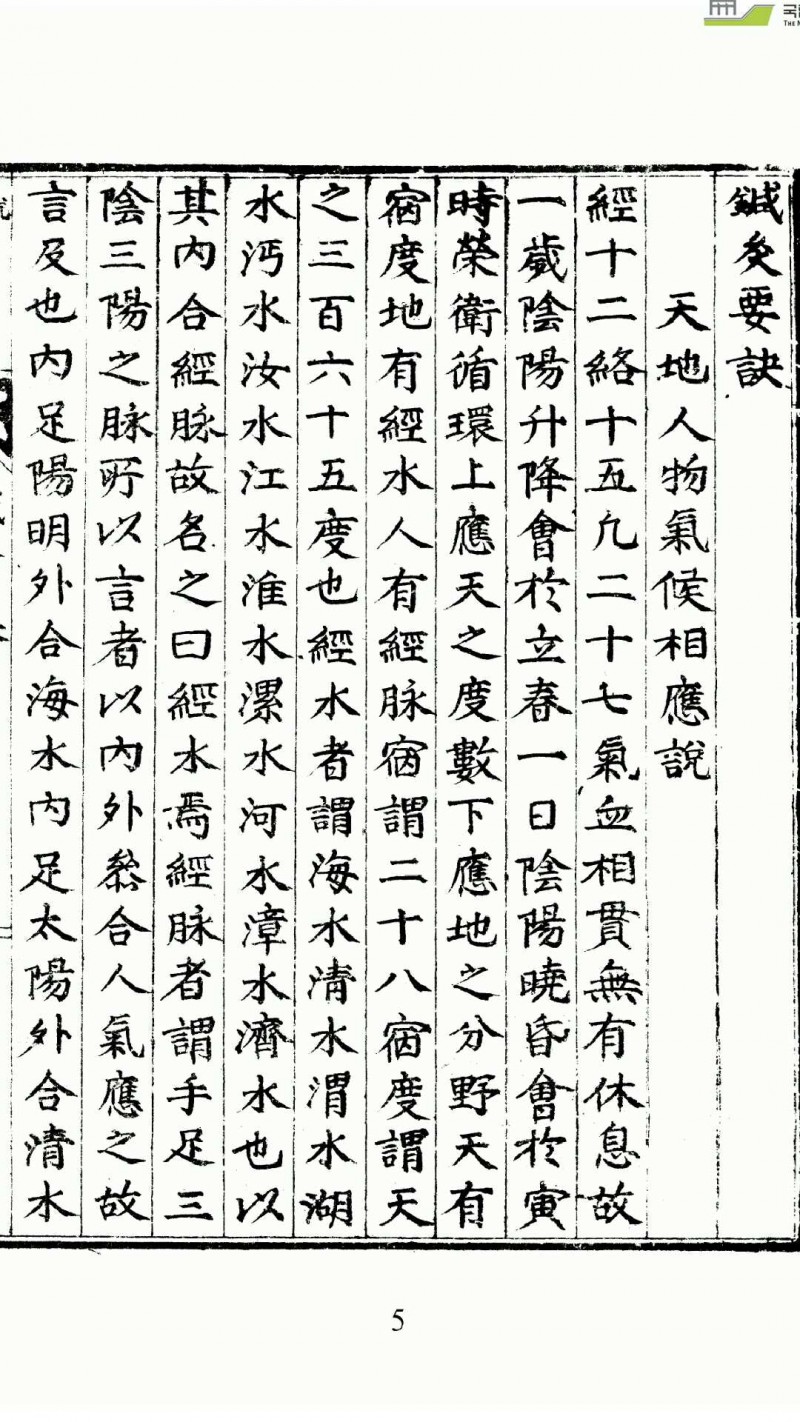 鍼灸要訣
天地人物氣候相應說
經十二絡十五凡二十七氣血相貫無有休息故
一歲陰陽升降會於立春一日陰陽曉昏會於寅
時榮衛循環上應天之度數下應地之分野天有
宿度地有經水人有經脉宿謂二十八宿度謂天
之三百六十五度也經水者謂海水淸水渭水湖
水沔水汝水江水淮水漯水河水漳水濟水也以
其内合經脉故名之曰經水焉經脉者謂手足三
陰三陽之脉所以言者以内外叅合人氣應之故
言及也内足陽明外合海水内足太陽外合淸水
5
THE N